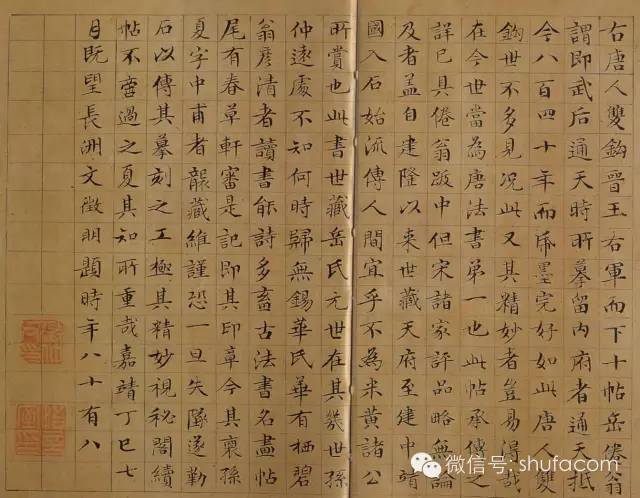 右唐人雙鈎晉王右軍而下十帖岳倦翁
謂即武后通天時所摹留內府者通天抵
今八百四十年而帋墨完好如此唐人雙
鈎世不多見况此又其精妙者豈易得哉
在今世當為唐法書弟一也此帖承傳之
詳已具倦翁跋中但宋諸家評品略無論
及者盖自建隆以来世藏天府至建中靖
國入石始流傳人間宜乎不為米黃諸公
所賞也此書世藏岳氏元世在其㡬世孫
仲遠處不知何時歸無錫華氏華有栖碧
翁彦清者讀書能詩多畜古法書名畫帖
尾有春草軒審是記即其印章今其裔孫
夏字中甫者襲藏維謹恐一旦失墜遂勒
石以傳其摹刻之工極其精妙視秘閣續
帖不啻過之夏其知所重哉嘉靖丁巳七
月既望長洲文徵明題時年八十有八
微信号: shufacom